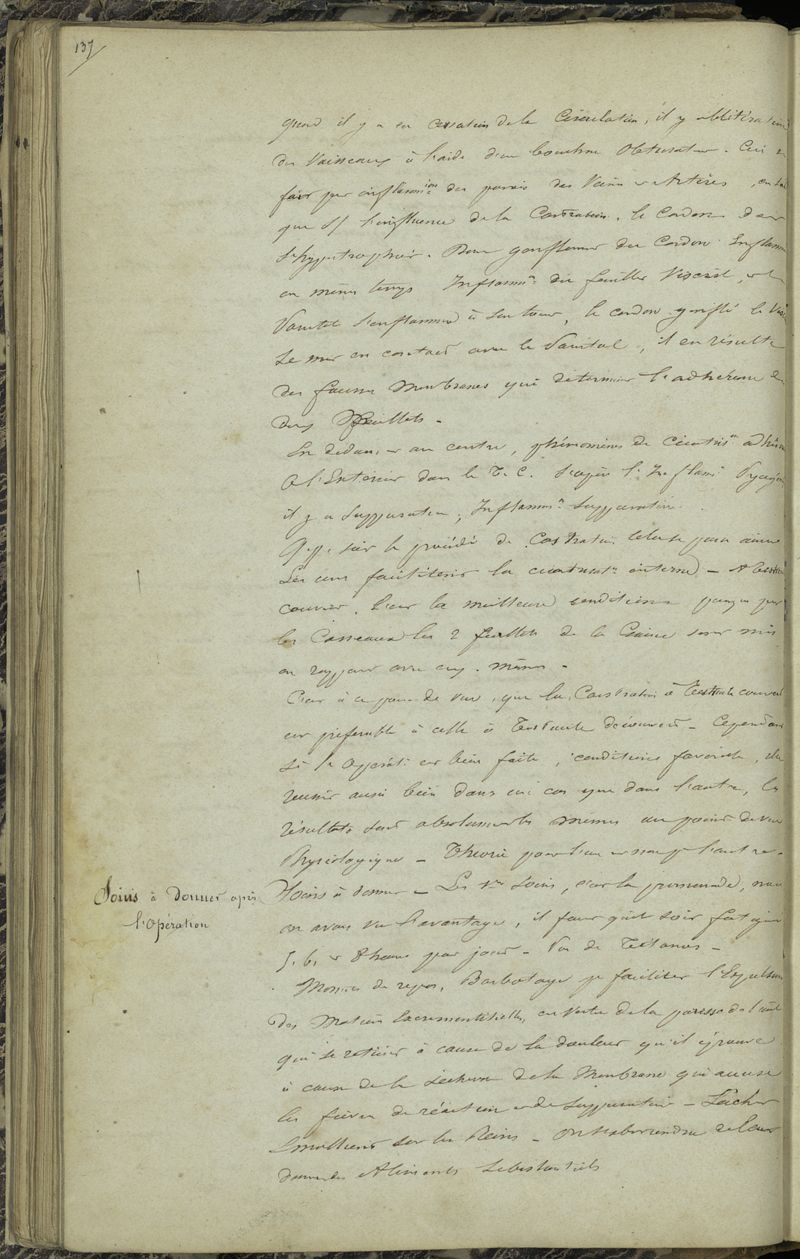 137
quand il y a eu cessation de la Circulation, il y a oblitération
des Vaisseaux à l'aide d'un bouchon Obturateur. Ceci se
fait par inflammion des parois des Veines et Artères, en tant
que sous l'influence de la Castration. le Cordon
s'hypertrophier. Pour gonflement du Cordon Inflamm
en même temps Inflammn du feuillet Viscéral, et le
Pariétal s'enflamme à son tour, le cordon gonflé le Viscé
se met en contact avec le Pariétal, il en résulte
des fausses Membranes qui détermine l'adhérence des
deux feuillets.
En dedans et au centre, phénomènes de Cicatrisn adhésive
A l'Extérieur dans le T. C. d'après l'Inflamn
il y a Suppuration, Inflammn Suppurative.
que soit le procédé de Castration
Les uns facilitent la cicatrisn interne – A testicule
couvert, c'est la meilleure condition, parce que par
les Casseaux les 2 feuillets de la Gaine sont mis
en rapport avec eux-mêmes –
C'est à ce point de vue, que la Castration à Testicule couvert
est préférable à celle à Testicule découvert – Cependant
si l'Opératn est bien faite, conditions favorables, elle
réussit aussi bien dans un cas que dans l'autre, les
résultats sont absolument les mêmes au point de vue
Physiologique – Théorie pour l'un et non pr l'autre –
Soins à Donner après
l'Opération
Soins à donner – Les 1ers soins, c'est la promenade, nous
en avons vu l'avantage, il faut qu'il soit fait
5, 6, et 8 heures par jour – Vu de Tétanos –
Moins de repos, Barbotage pr faciliter l'Expulsion
des Matières Excrémentitielles, en vertu de la paresse de l'int
qui se retient à cause de la douleur qu'il éprouve
à cause de la de la Membrane qui accuse
les fièvres de réaction et de Suppuration – Sachet
émollient sur les Reins –
donner des Aliments Substantiels